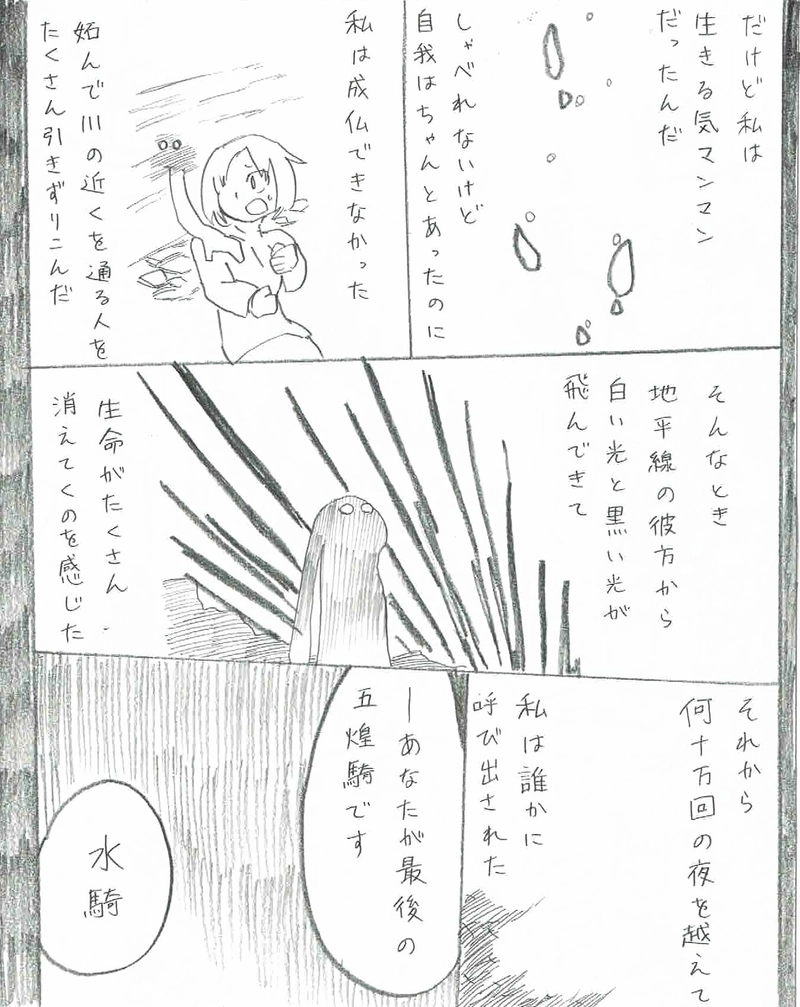 だけど私は
生きる気マンマン
だったんだ
しゃべれないけど
自我はちゃんとあったのに
私は成仏できなかった
妬んで川の近くを通る人を
たくさん引きずりこんだ
そんなとき
地平線の彼方から
白い光と黒い光が
飛んできて
生命がたくさん
消えてくのを感じた
それから
何十万回の夜を越えて
私は誰かに
呼び出された
ーあなたが最後の
五煌騎です
水騎